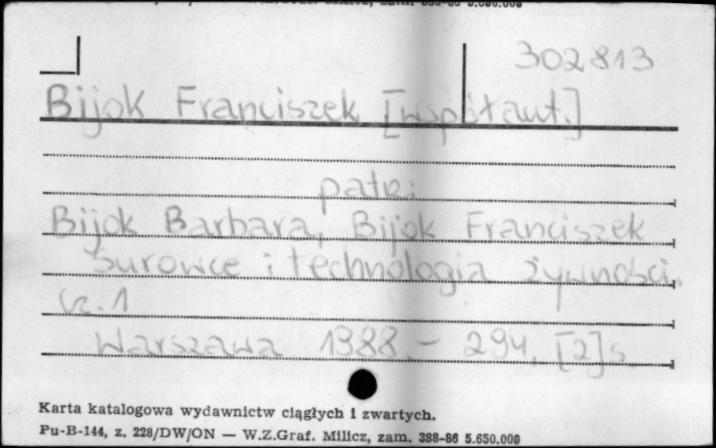 302813
Bijok Franciszek [współaut.]
patrz:
Bijok Barbara, Bijok Franciszek
Surowce i technologia żywności.
Cz. 1
Warszawa 1988. – 294, [2] s.
Karta katalogowa wydawnictw ciągłych i zwartych.
Pu-B-144, z. 228/DW/ON — W.Z.Graf. Milicz, zam. 388-86 5.650.000